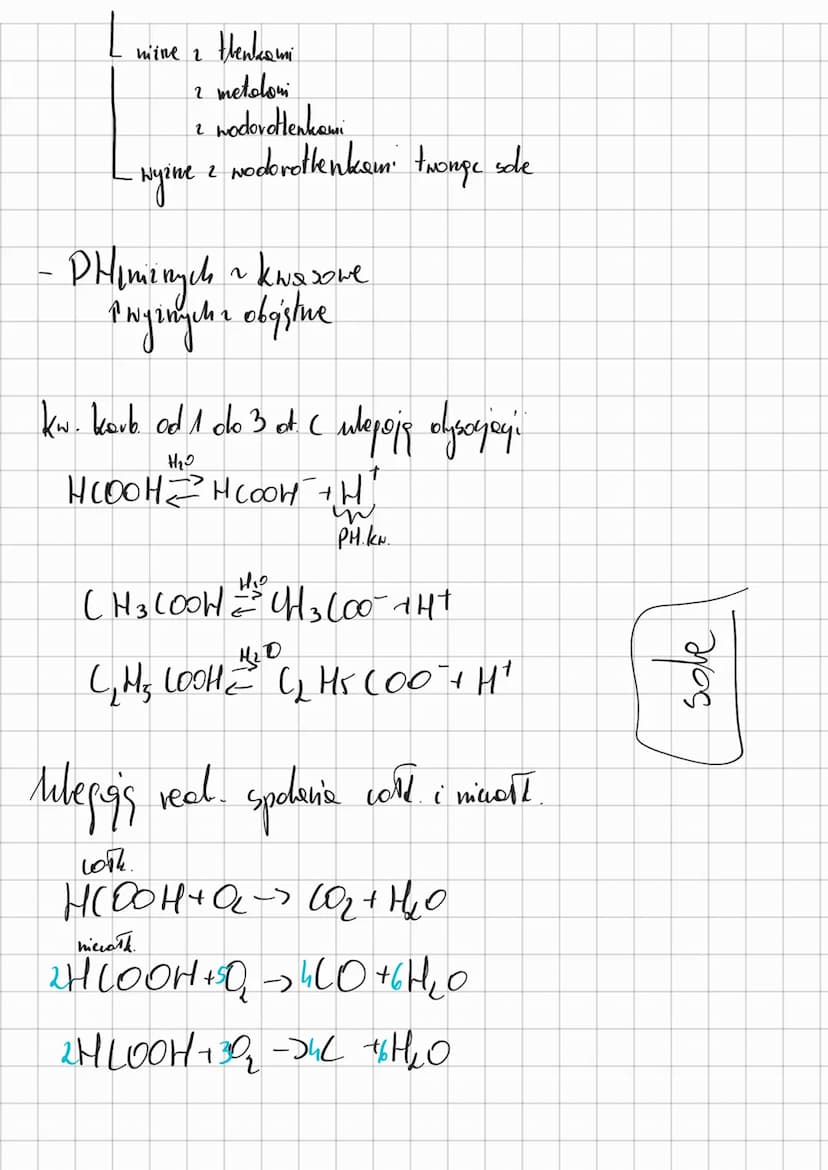 niżne z tlenkami
z metalami
z wodorotlenkami
wyższe z wodorotlenkami tworząc sole
- PH niższych ~ kwasowe
wyższych ~ obojętne
kw. karb. od 1 do 3 at. C ulegają dysocjacji
H₂O
HCOOH ⇄ HCOOH⁻ + H⁺
PH. kw.
H₂O
CH₃COOH ⇄ CH₃COO⁻ + H⁺
H₂O
C₂H₅COOH ⇄ C₂H₅COO⁻ + H⁺
sole
Ulegają reak. spalania całk. i niecałk.
całk.
HCOOH + O₂ -> CO₂ + H₂O
niecałk.
2HCOOH + 5O₂ -> 4CO + 6H₂O
2HCOOH + 3O₂ -> 4C + 6H₂O